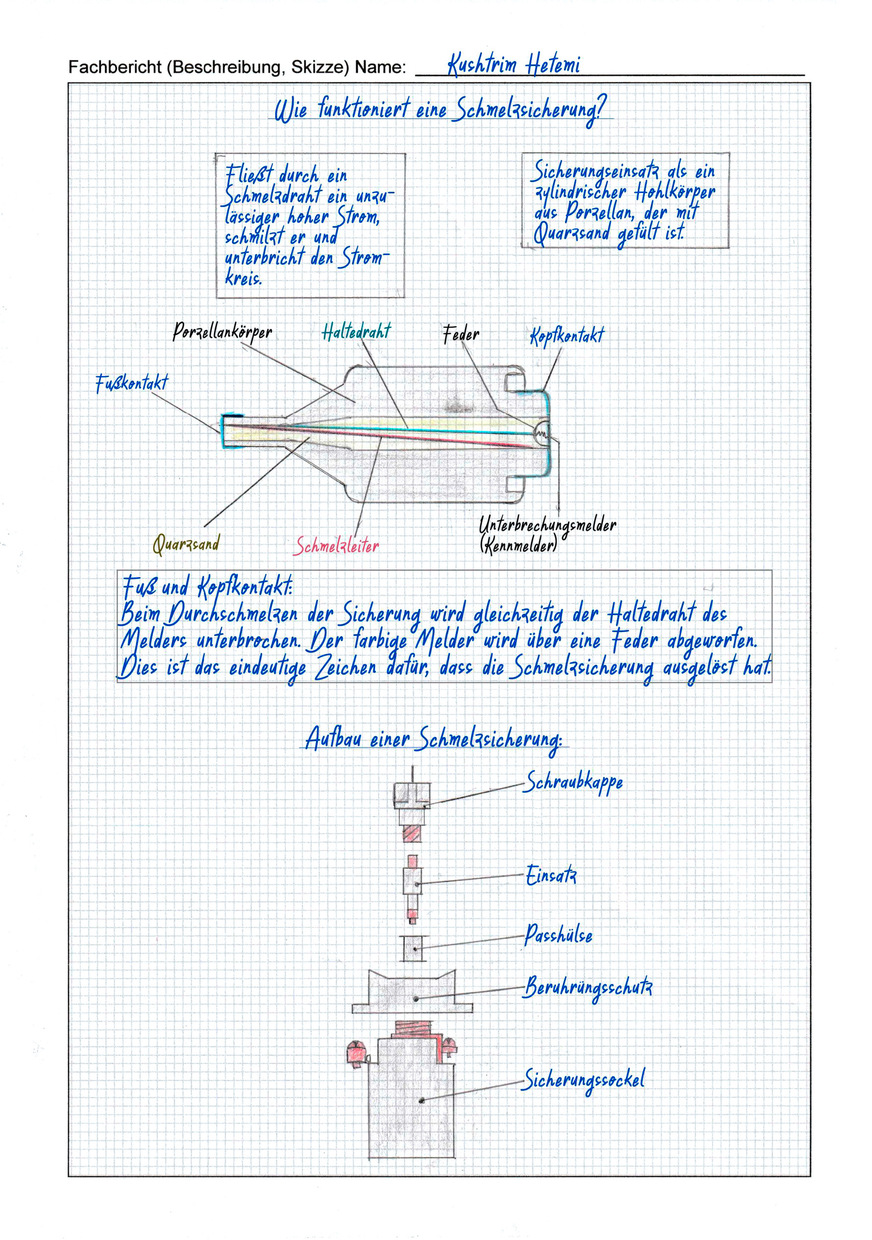 Fachbericht (Beschreibung, Skizze) Name: Kushtrim Hetemi
Wie funktioniert eine Schmelzsicherung?
Fließt durch ein
Schmelzdraht ein unzu-
lässiger hoher Strom,
schmilzt er und
unterbricht den Strom-
kreis.
Sicherungseinsatz als ein
zylindrischer Hohlkörper
aus Porzellan, der mit
Quarzsand gefült ist.
Porzellankörper
Haltedraht
Feder
Kopfkontakt
Fußkontakt
Quarzsand
Schmelzleiter
Unterbrechungsmelder
(Kennmelder)
Fuß und Kopfkontakt:
Beim Durchschmelzen der Sicherung wird gleichzeitig der Haltedraht des
Melders unterbrochen. Der farbige Melder wird über eine Feder abgeworfen.
Dies ist das eindeutige Zeichen dafür, dass die Schmelzsicherung ausgelöst hat.
Aufbau einer Schmelzsicherung:
Schraubkappe
Einsatz
Passhülse
Beruhrüngsschutz
Sicherungssockel